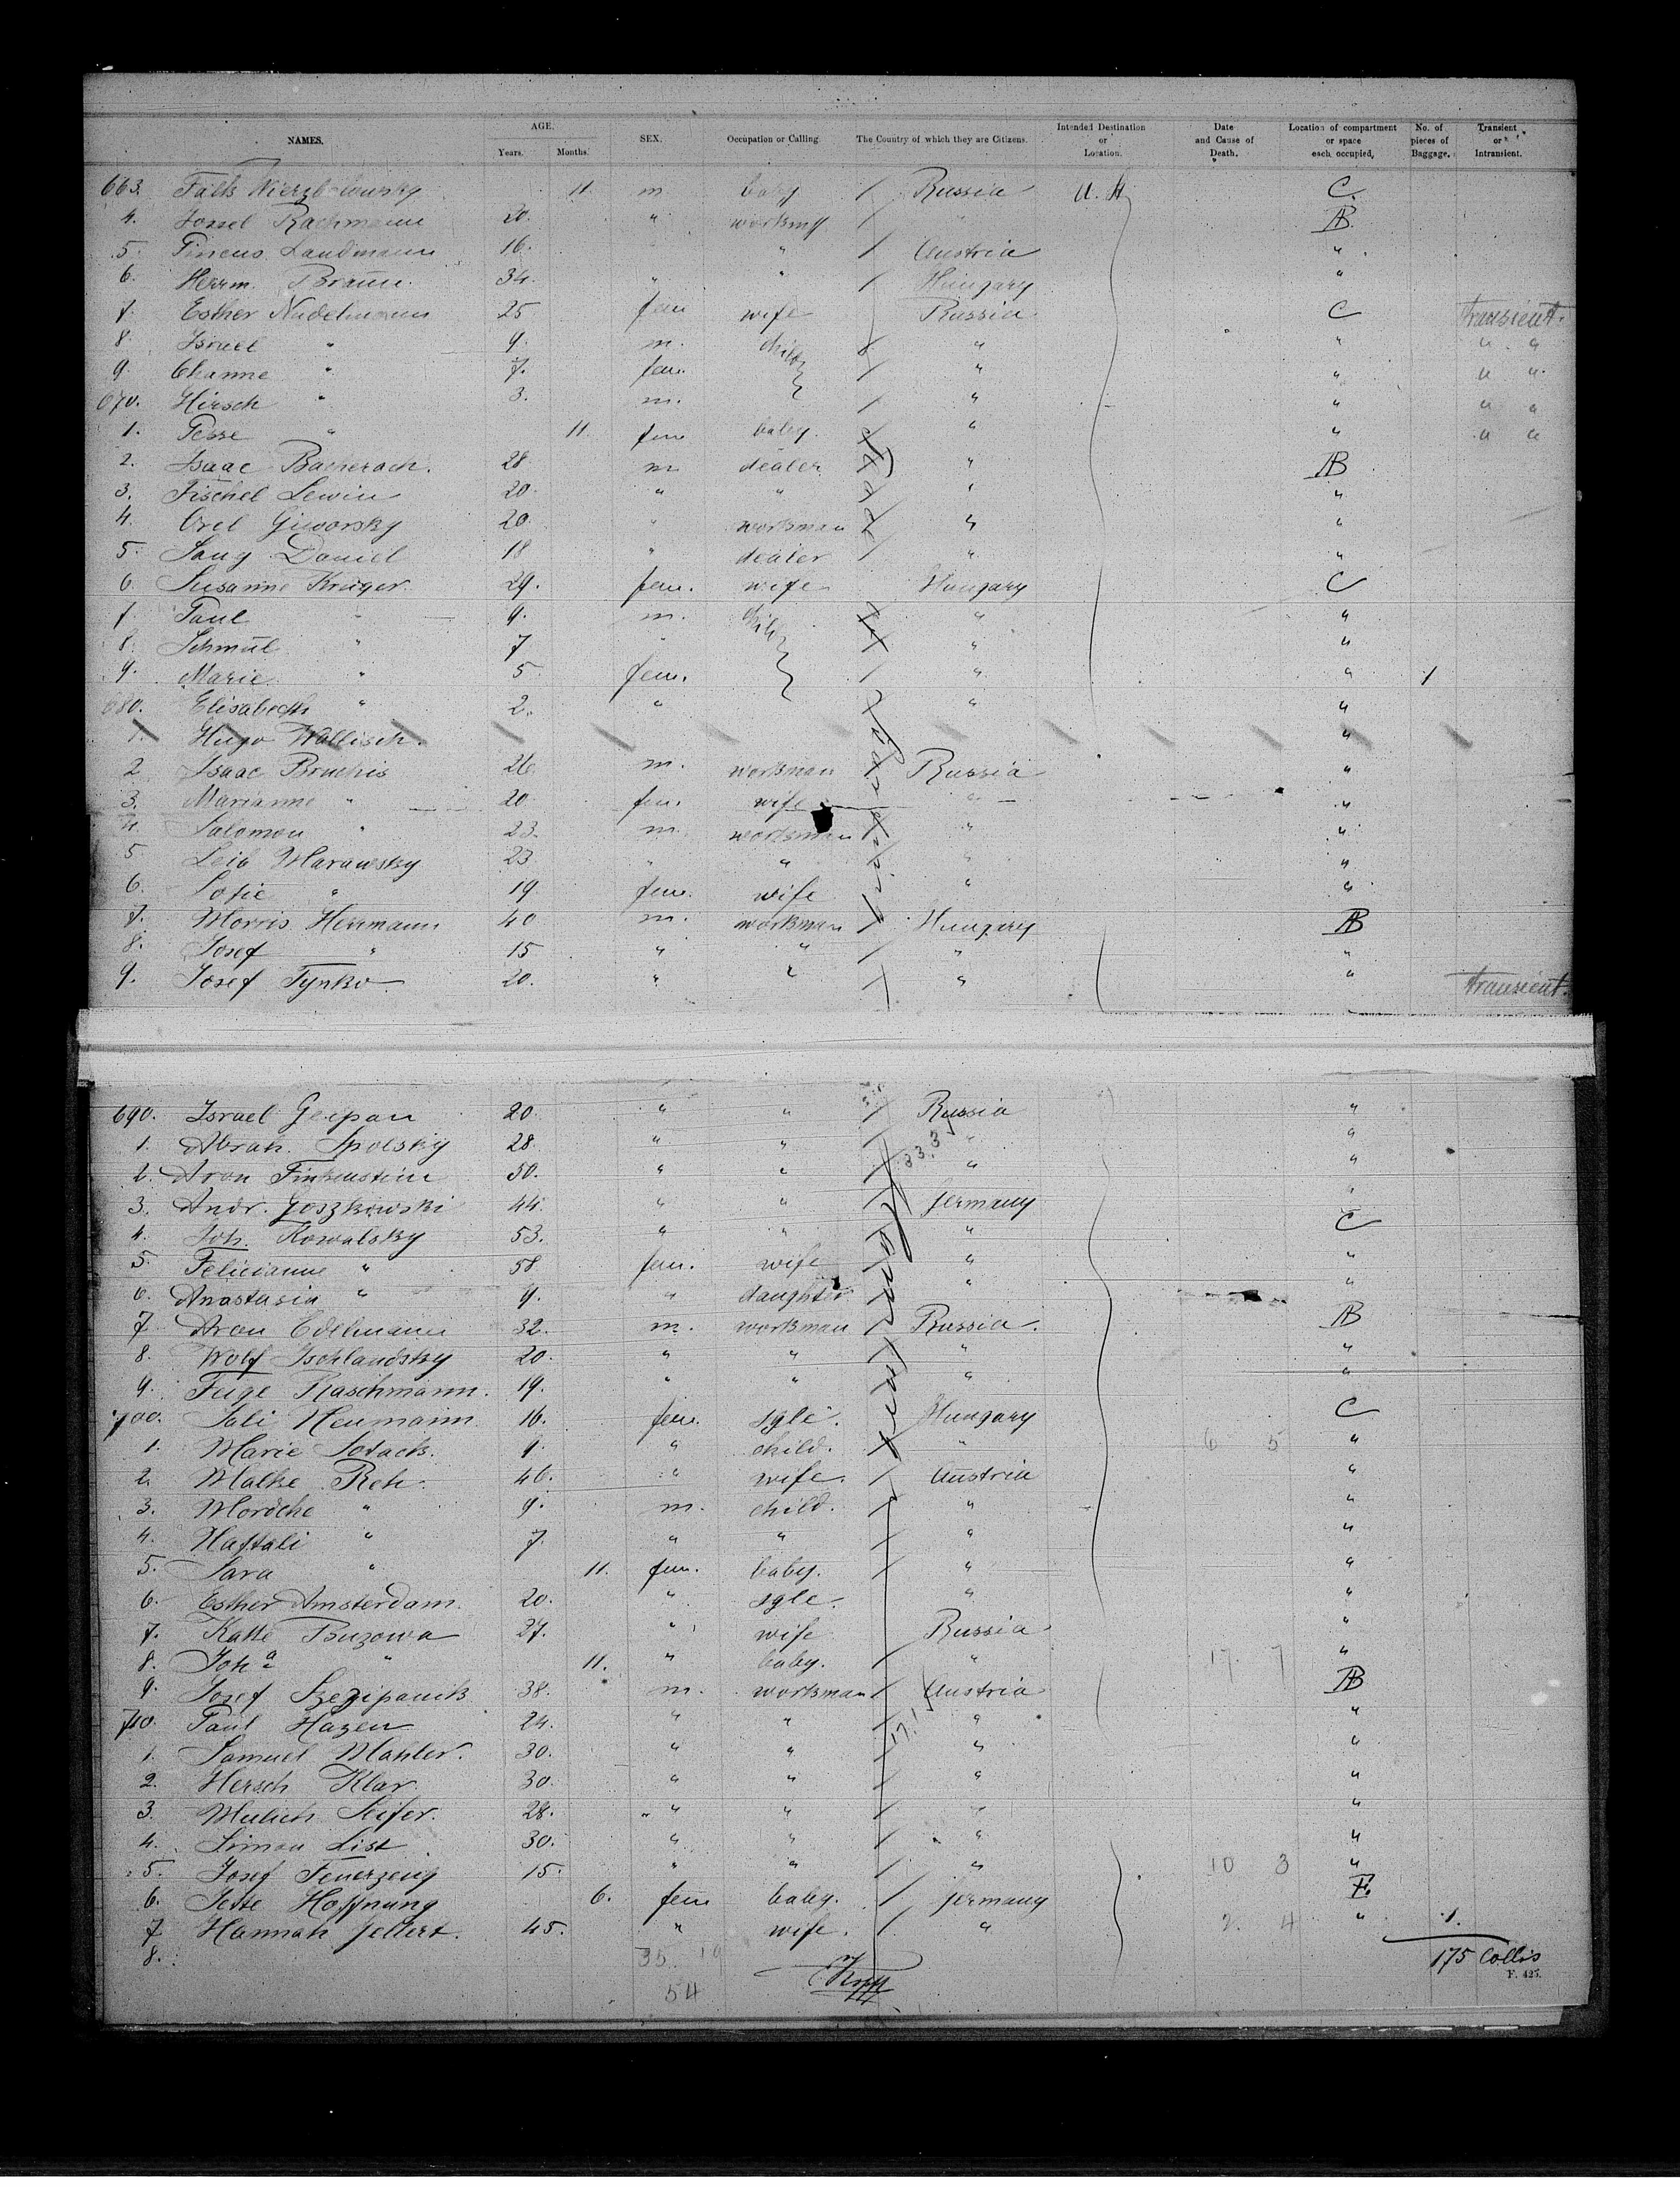 NAMES. AGE. Years. Months. SEX. Occupation or Calling The Country of which they are Citizens. Intended Destination or Location. Date and Cause of Death. Location of compartment or space each occupied, No. of pieces of Baggage. Transient or Intransient.
663. Falk 11. m baby / Russia U. S. C.
4. Jossel Rachmann 20. " / AB.
5. Pincus Landmann 16. " / Austria "
6. Herrm. Braun. 34. " " / Hungary "
7. Esther Nudelmann 25 fem wife Russia C transient.
8. Israel " 9. m. child / " " " "
9. Channe " 7. fem. / " " " "
670. Hirsch " 3. m. / " " " "
1. Pesse " 11. fem baby. " " " "
2. Isaac Bacherach. 28 m dealer " AB
3. Fischel Lewin 20. " " " "
4. Orel Giworsky 20. " workman " "
5. Saug Daniel 18 " dealer / " "
6. Susanne Kruger. 29. fem. wife Hungary C
7. Paul " 9. m. child " "
8. Schmul " 7 " " "
9. Marie " 5 fem. / " " 1
680. Elisabeth " 2. " " "
1. Hugo Wallisch. "
2 Isaac Bruchis 26. m. workman Russia "
3. Marianne " 20. fem. wife " "
4. Salomon " 23. m. workman " "
5. Leib Marawsky 23 " " " "
6. Sofie " 19. fem. wife " "
7. Morris Herrmann 40 m. workman / Hungary AB
8. Josef " 15 " " / " "
9. Josef Tynko 20. " " / " " transient.
690. Israel Geipan 20. " " / Russia "
1. Abrah. Spolsky 28. " " / " "
2. Aron Finkenstein 50. " " / " "
3. Andr. Goszkowski 44. " " Germany "
4. Joh. Kowalsky 53. " " " C
5. Felicianne " 58 fem. wife " "
6. Anastasia " 9. " daughter " "
7. Aron Edelmann 32. m. workman / Russia. AB
8. Wolf Ischlandsky 20. " " " "
9. Feige Raschmann. 19. " " " "
700. Sali Neumann 16. fem. sgle. Hungary C
1. Marie Sotack. 9. " child. " 6 5 "
2. Malke Reh. 46. " wife. / Austria "
3. Mordche " 9. m. child. / " "
4. Naftali " 7. " " / " "
5. Sara " 11. fem. baby. / " "
6. Esther Amsterdam. 20. " sgle. " "
7. Katte Buzowa 27. " wife Russia "
8. Joha " 11. " baby. / " 17. 7 "
9. Josef Szezipanik 38. m. workman / Austria AB
710. Paul Hazen 24. " " / " "
1. Samuel Mahler. 30. " " / " "
2. Hersch Klar. 30. " " / " "
3. Meilich Seifer. 28. " " / " "
4. Simon List 30. " " / " "
5. Josef Feuerzeug 15. " " / " 10 3 "
6. Jette Hoffnung 6. fem baby. / Germany F.
7 Hannah Gellert. 45. " wife. / " 2. 4 " 1.
8. 35 19 175 Collis
54 F. 425.